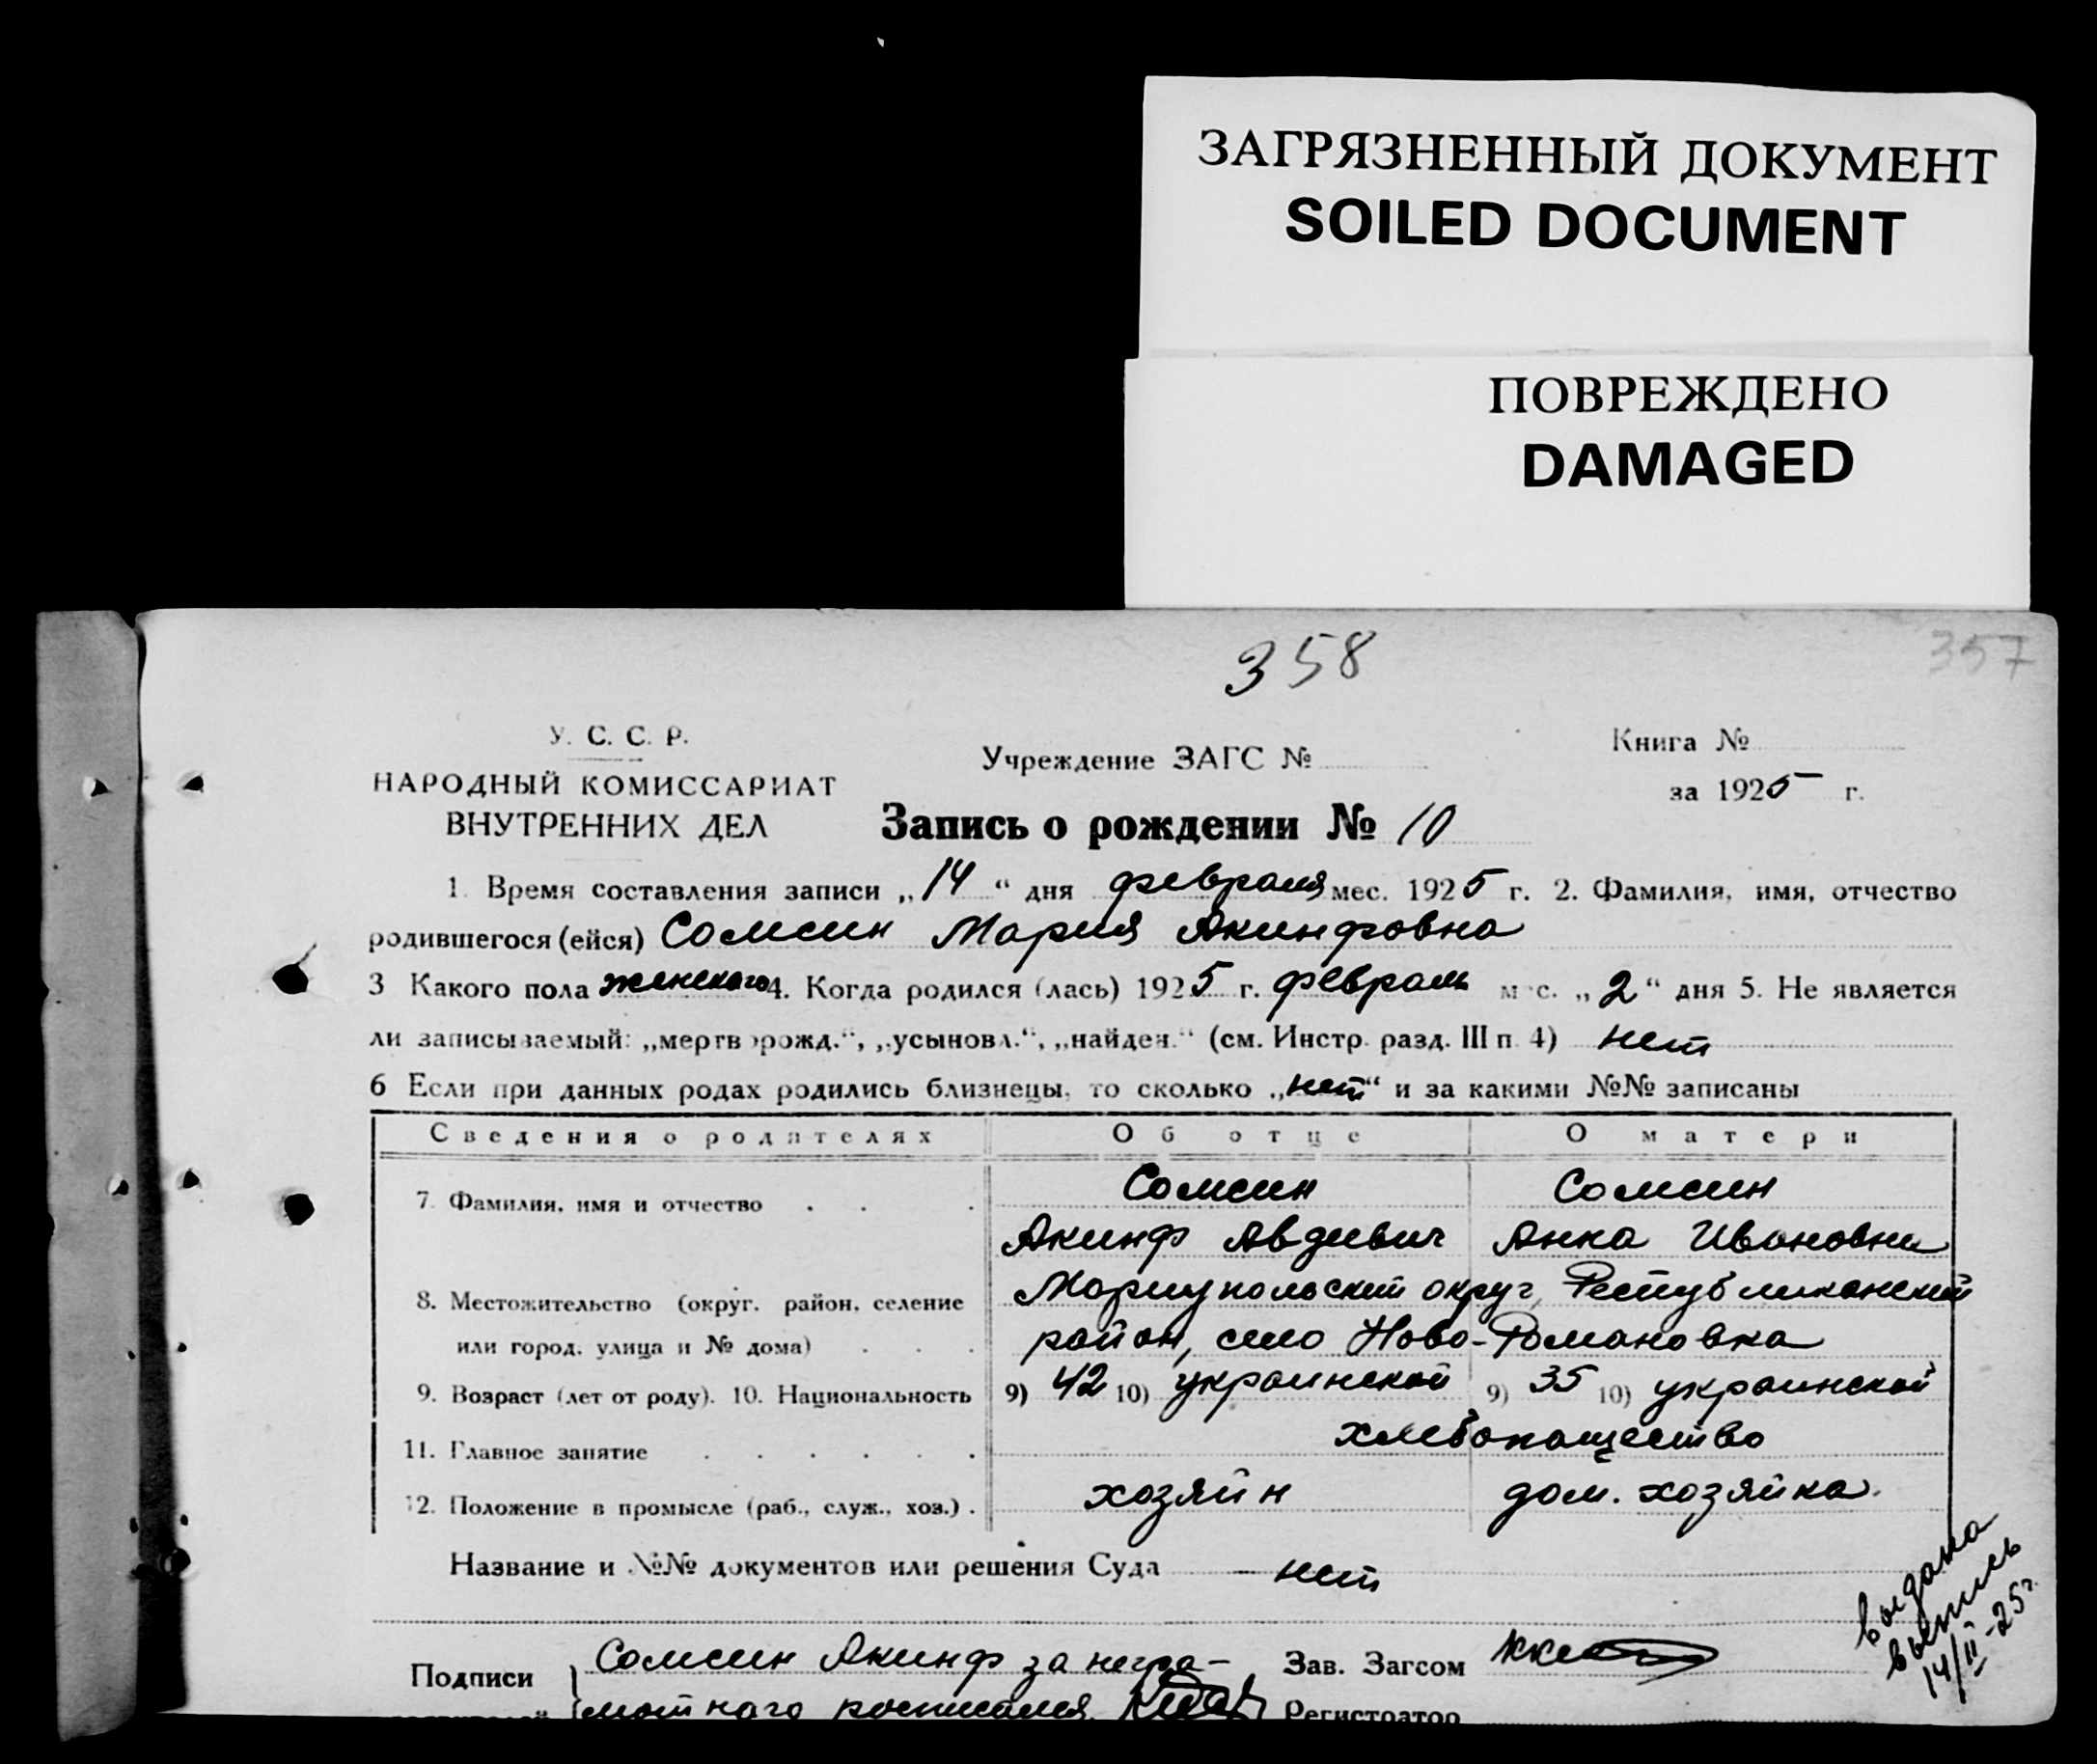 ЗАГРЯЗНЕННЫЙ ДОКУМЕНТ
SOILED DOCUMENT
ПОВРЕЖДЕНО
DAMAGED
358
357
У. С. С. Р.
НАРОДНЫЙ КОМИССАРИАТ
ВНУТРЕННИХ ДЕЛ
Учреждение ЗАГС №
Книга №
за 1925 г.
Запись о рождении № 10
1. Время составления записи „14“ дня февраля мес. 1925 г. 2. Фамилия, имя, отчество
родившегося (ейся) Сомсин Мария Акинфовна
3 Какого пола женского 4. Когда родился (лась) 1925 г. февраль мес. „2“ дня 5. Не является
ли записываемый: „мертворожд.“, „усыновл.“, „найден.“ (см. Инстр. разд. III п. 4) нет
6 Если при данных родах родились близнецы, то сколько „нет“ и за какими №№ записаны
Сведения о родителях Об отце О матери
7. Фамилия, имя и отчество . . . Сомсин Сомсин
Акинф Авдеевич Анна Ивановна
8. Местожительство (округ, район, селение Мариупольский округ, Республиканский
или город, улица и № дома) . . . район, село Ново-Романовка
9. Возраст (лет от роду). 10. Национальность 9) 42 10) украинской 9) 35 10) украинской
11. Главное занятие . . . . . . хлебопашество
12. Положение в промысле (раб., служ., хоз.) . хозяин дом. хозяйка.
Название и №№ документов или решения Суда нет
выдана
выпись
14/II-25г.
Подписи Сомсин Акинф за негра- Зав. Загсом
мотного росписался Регистратор